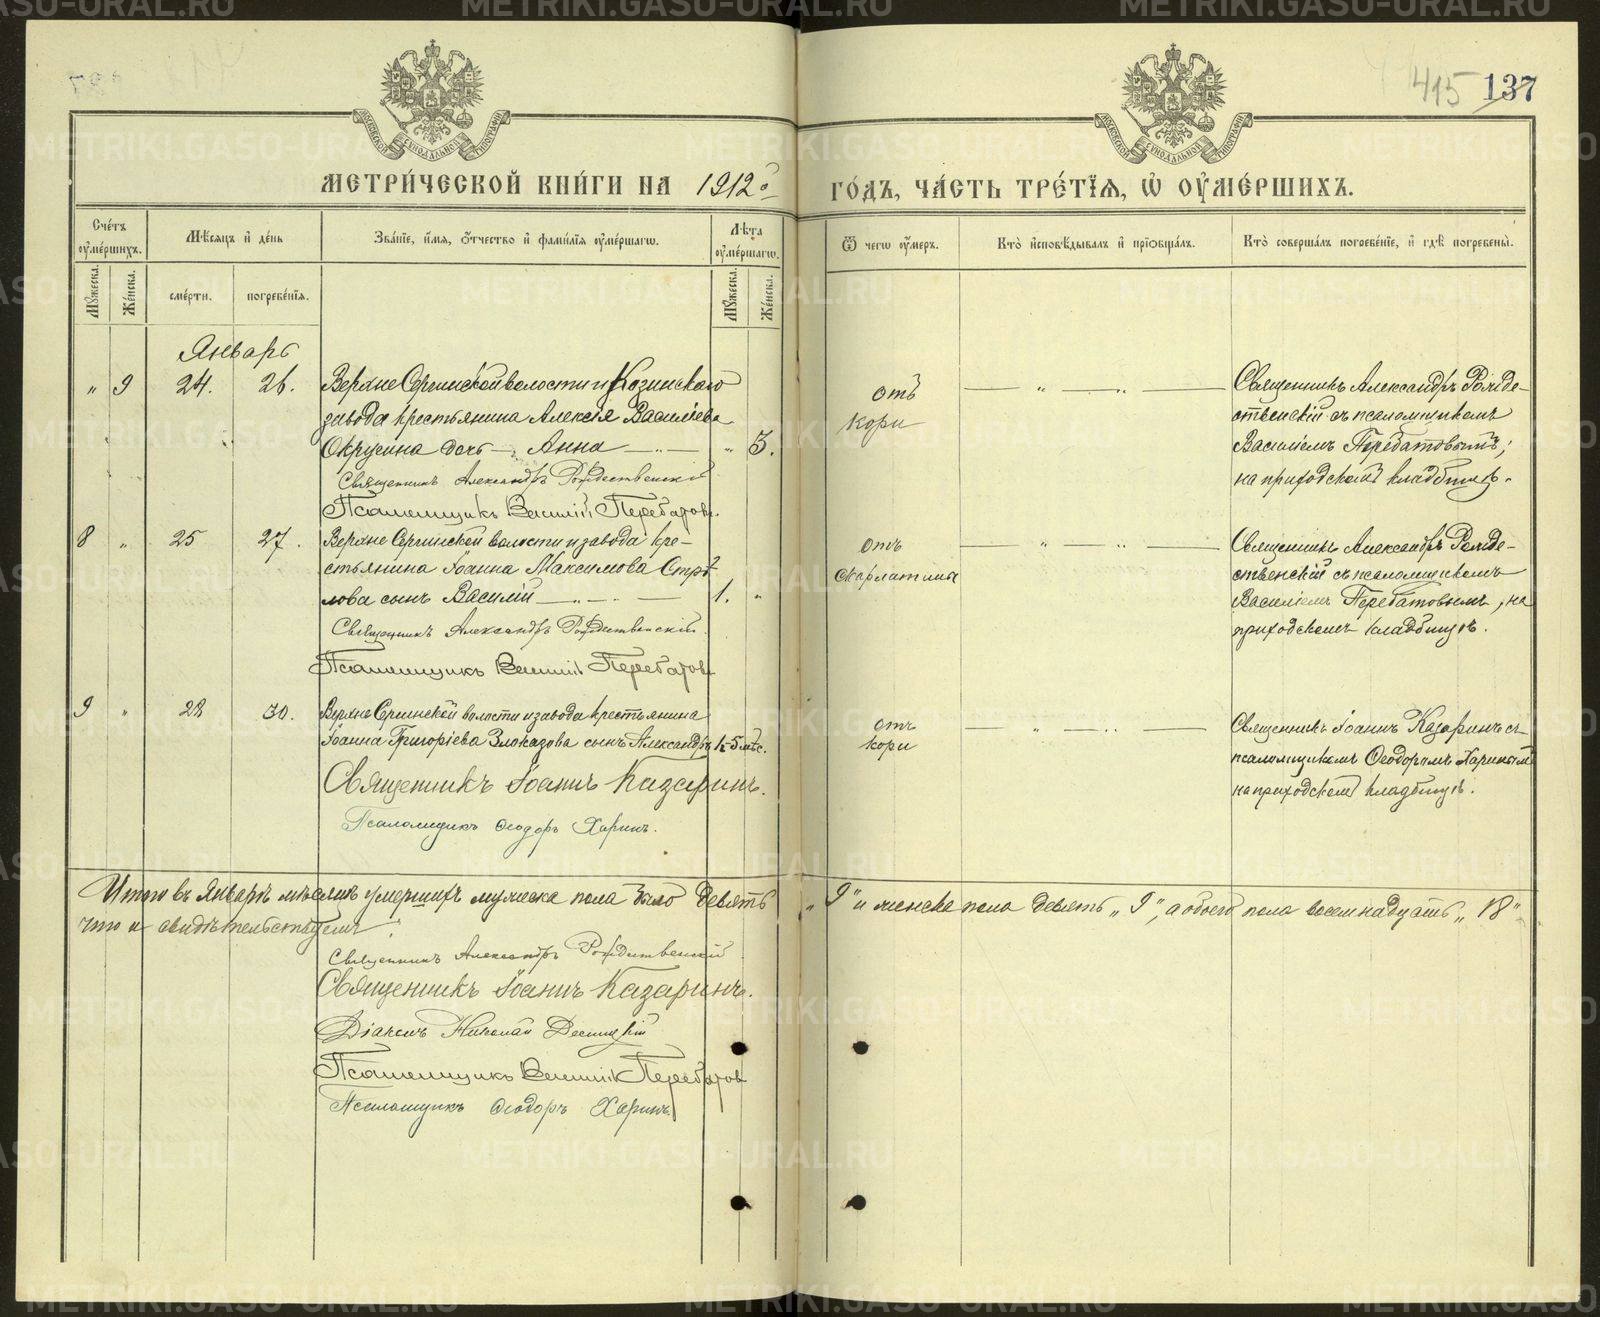 415 137
МЕТРИ́ЧЕСКОЙ КНИ́ГИ НА 1912й ГО́ДЪ, ЧА́СТЬ ТРЕ́ТЇѦ, Ѡ ОУМЕ́РШИХЪ.
Сче́тъ оуме́ршихъ.
Мꙋжеска.
Же́нска.
Мѣ́сѧцъ и де́нь
сме́рти.
погребе́нїѧ.
Зва́нїе, и́мѧ, ѻ́тчество и фами́лїѧ оуме́ршагѡ.
Лѣ́та оуме́ршагѡ.
Мꙋжеска.
Же́нска.
Ѿ чегѡ оу́меръ.
Кто̀ и҆сповѣ́дывалъ и҆ прїѡбща́лъ.
Кто̀ соверша́лъ погребе́нїе, и҆ гдѣ̀ погребены̀.
Январь
„ 9 24. 26. Верхне Сергинской волости и Козинского
завода крестьянина Алексѣя Васильева
Окрусина дочь — Анна — „ — „ 3.
Священникъ Александръ Рождественскій
Псаломщикъ Василій Перебатовъ.
отъ
кори
— „ — „ —
Священникъ Александръ Рожде-
ственскій съ псаломщикомъ
Василіемъ Перебатовымъ;
на приходскомъ кладбищѣ.
8 „ 25 27. Верхне Сергинской волости и завода кре-
стьянина Іоанна Максимова Стрѣ-
лова сынъ Василій — „ — „ — 1. „
Священникъ Александръ Рождественскій.
Псаломщикъ Василій Перебатовъ
отъ
скарлатины
— „ — „ —
Священникъ Александръ Рожде-
ственскій съ псаломщикомъ
Василіемъ Перебатовымъ, на
приходскомъ кладбищѣ.
9 „ 28 30. Верхне Сергинской волости и завода крестьянина
Іоанна Григоріева Злоказова сынъ Александръ 5 мѣс.
Священникъ Іоаннъ Казаринъ.
Псаломщикъ Ѳеодоръ Харинъ.
отъ
кори
— „ — „ —
Священникъ Іоаннъ Казаринъ съ
псаломщикомъ Ѳеодоромъ Харинымъ
на приходскомъ кладбищѣ.
Итого въ Январѣ мѣсяцѣ умершихъ мужеска пола было девять „9“ и женска пола девять „9“, а обоего пола восемнадцать „18“
что и свидѣтельствуемъ:
Священникъ Александръ Рождественскій
Священникъ Іоаннъ Казаринъ.
Діаконъ Николай
Псаломщикъ Василій Перебатовъ
Псаломщикъ Ѳеодоръ Харинъ
METRIKI.GASO-URAL.RU